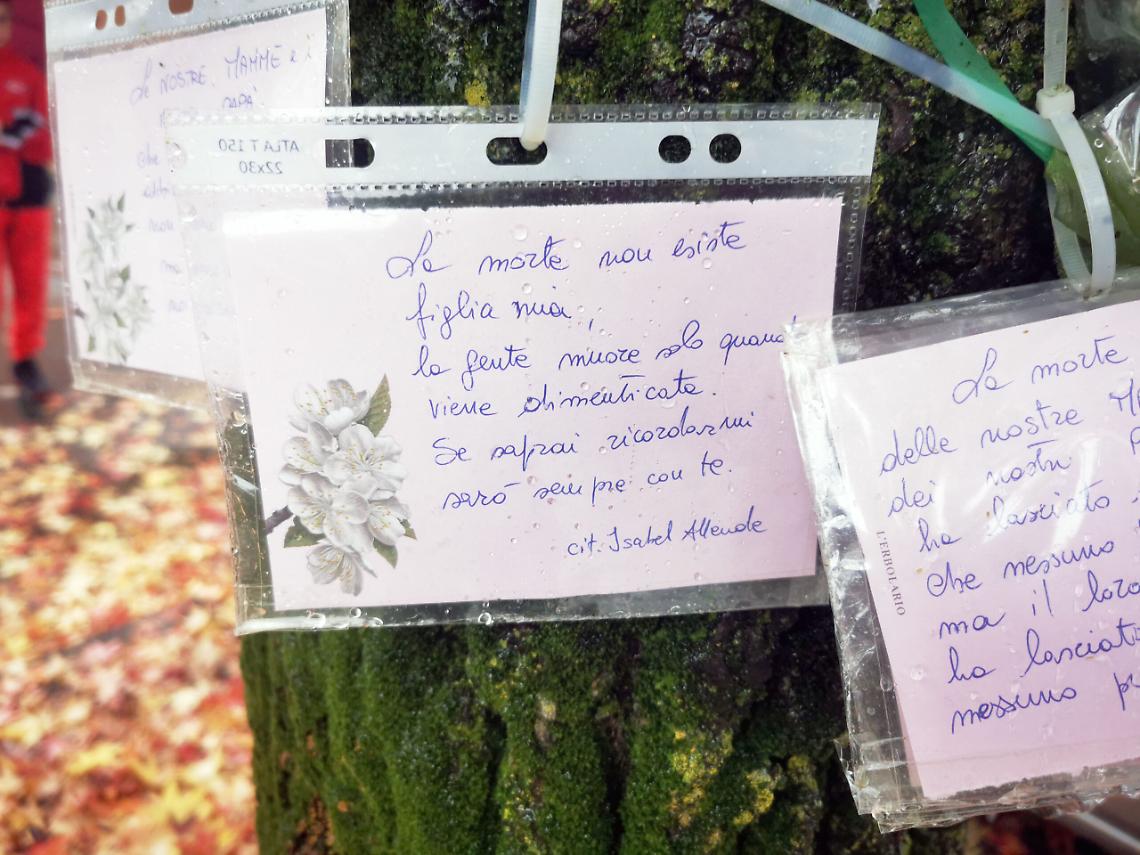 Le NOSTRE MAMME e i
PAPÀ
che
non
ma
ATLA T 150
22x30
La morte non esiste
figlia mia,
la gente muore solo quand
viene dimenticata.
Se saprai ricordarmi
sarò sempre con te.
cit. Isabel Allende
La morte
delle nostre
dei nostri
ha lasciato
che nessuno
ma il loro
ha lasciat
nessuno p
L'ERBOLARIO